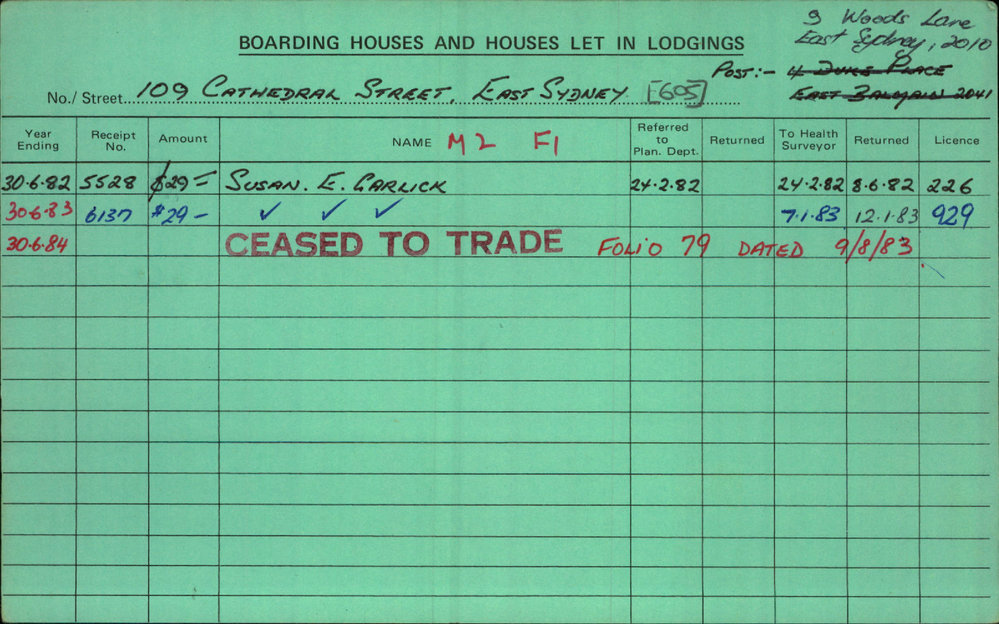 9 Woods Lane
East Sydney, 2010
BOARDING HOUSES AND HOUSES LET IN LODGINGS
Post:- 4 Dukes Place
East Balmain 2041
No./ Street 109 Cathedral Street, East Sydney [605]
Year Ending Receipt No. Amount NAME M2 F1 Referred to Plan. Dept. Returned To Health Surveyor Returned Licence
30.6.82 5528 $29- Susan. E. Garlick 24.2.82 24.2.82 8.6.82 226
30.6.83 6137 $29- ✓ ✓ ✓ 7.1.83 12.1.83 929
30.6.84 CEASED TO TRADE Folio 79 Dated 9/8/83